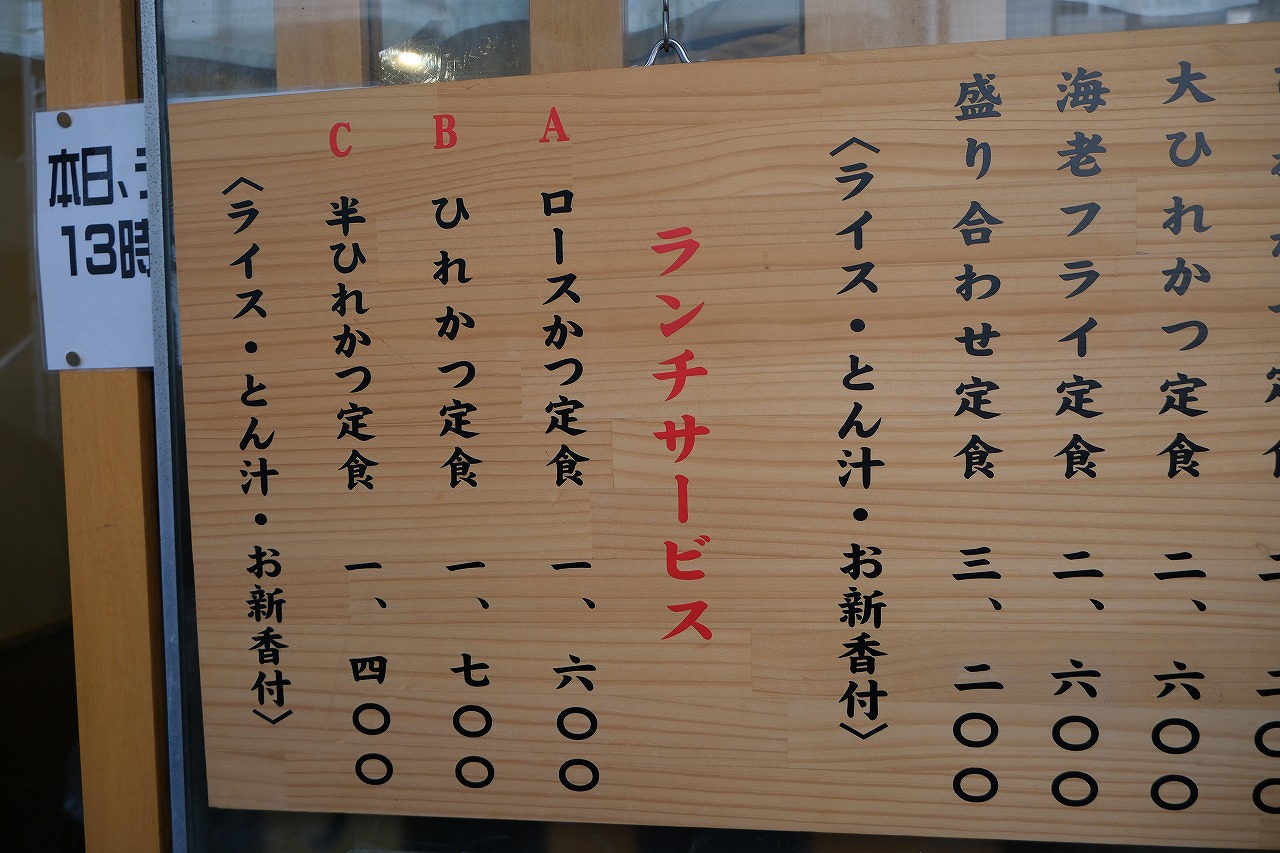 大ひれかつ定食 二、六〇〇
海老フライ定食 二、六〇〇
盛り合わせ定食 三、二〇〇
〈ライス・とん汁・お新香付〉
ランチサービス
A ロースかつ定食 一、六〇〇
B ひれかつ定食 一、七〇〇
C 半ひれかつ定食 一、四〇〇
〈ライス・とん汁・お新香付〉
本日、
13時